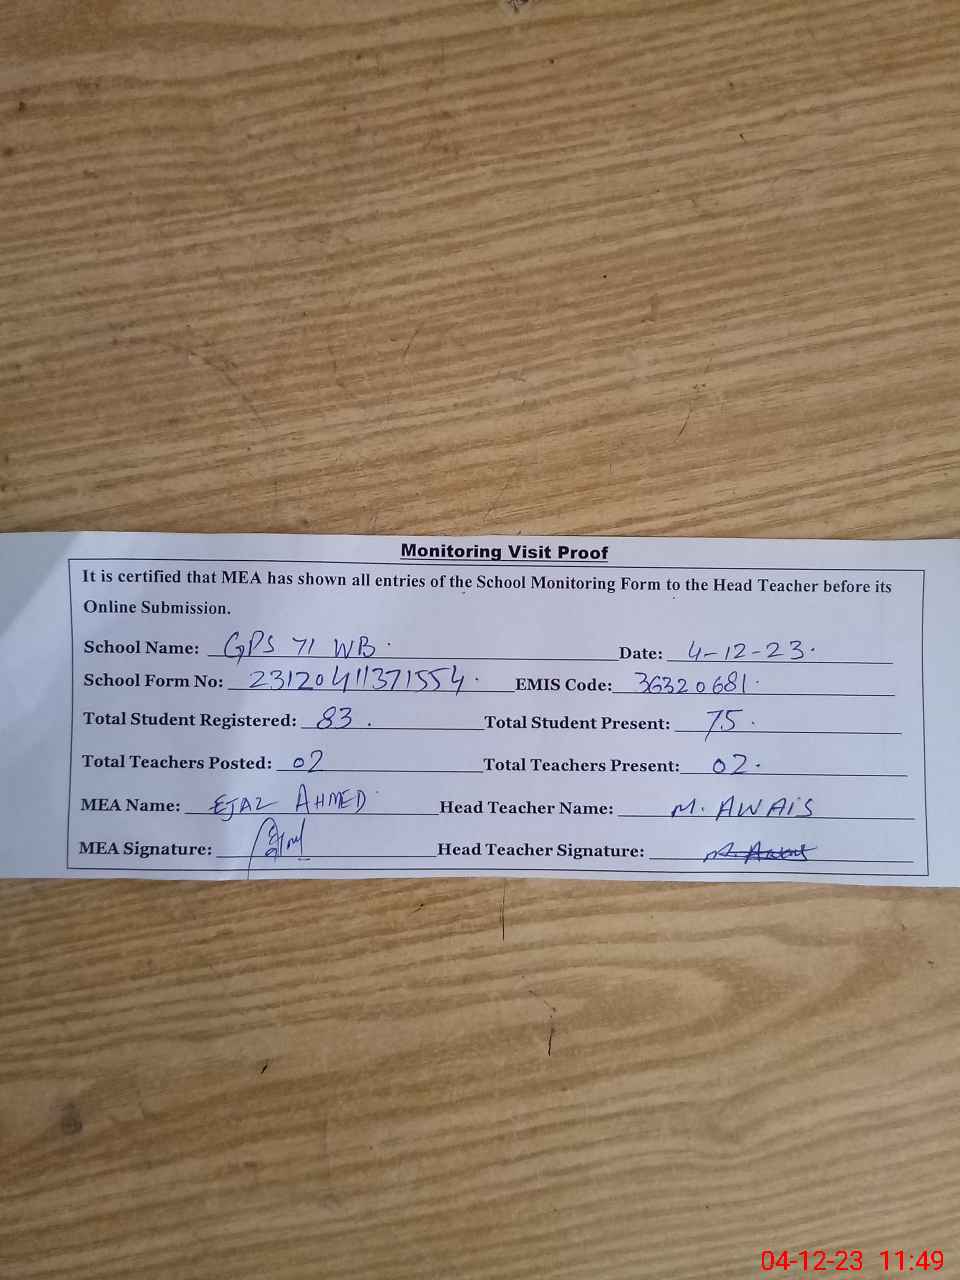 Monitoring Visit Proof
It is certified that MEA has shown all entries of the School Monitoring Form to the Head Teacher before its
Online Submission.
School Name: GPS 71 WB. Date: 4-12-23.
School Form No: 23120411371554. EMIS Code: 36320681.
Total Student Registered: 83. Total Student Present: 75.
Total Teachers Posted: 02 Total Teachers Present: 02.
MEA Name: EJAZ AHMED Head Teacher Name: M. AWAiS
MEA Signature: Head Teacher Signature:
04-12-23 11:49